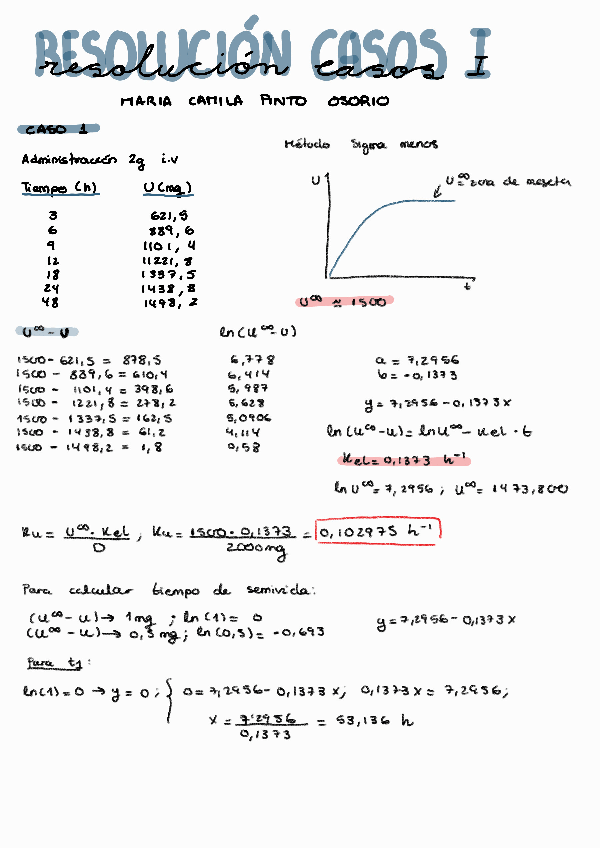 RESOLUCIÓN CASOS I
resolución casos I
MARIA CAMILA PINTO OSORIO
CASO 1
Administración 2g i.v
Método Sigma menos
Tiempo (h) U(mg)
3 621,5
6 889,6
9 1101,4
12 11221,8
18 1337,5
24 1438,8
48 1498,2
U
U∞ = zona de meseta
t
U∞ ≈ 1500
U∞ - U ln(U∞-U)
1500 - 621,5 = 878,5 6,778
1500 - 889,6 = 610,4 6,414
1500 - 1101,4 = 398,6 5,987
1500 - 1221,8 = 278,2 5,628
1500 - 1337,5 = 162,5 5,0906
1500 - 1438,8 = 61,2 4,114
1500 - 1498,2 = 1,8 0,58
a = 7,2956
b = -0,1373
y = 7,2956 - 0,1373x
ln(U∞-U) = lnU∞ - Kel · t
Kel = 0,1373 h⁻¹
lnU∞ = 7,2956 ; U∞ = 1473,800
Ku = U∞ · Kel / D ; Ku = 1500 · 0,1373 / 2000mg = 0,102975 h⁻¹
Para calcular tiempo de semivida:
(U∞ - U) → 1mg ; ln(1) = 0
(U∞ - U) → 0,5mg ; ln(0,5) = -0,693
y = 7,2956 - 0,1373x
Para t1:
ln(1) = 0 → y = 0 ; { 0 = 7,2956 - 0,1373x ; 0,1373x = 7,2956 ;
x = 7,2956 / 0,1373 = 53,136 h